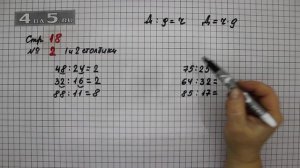 4 a 5 .ru
Д : д = ч. Д = ч · д
Стр 18
№ 2 1 и 2 столбики
48 : 24 = 2 75 : 25
32 : 16 = 2 64 : 32 =
88 : 11 = 8 85 : 17 =